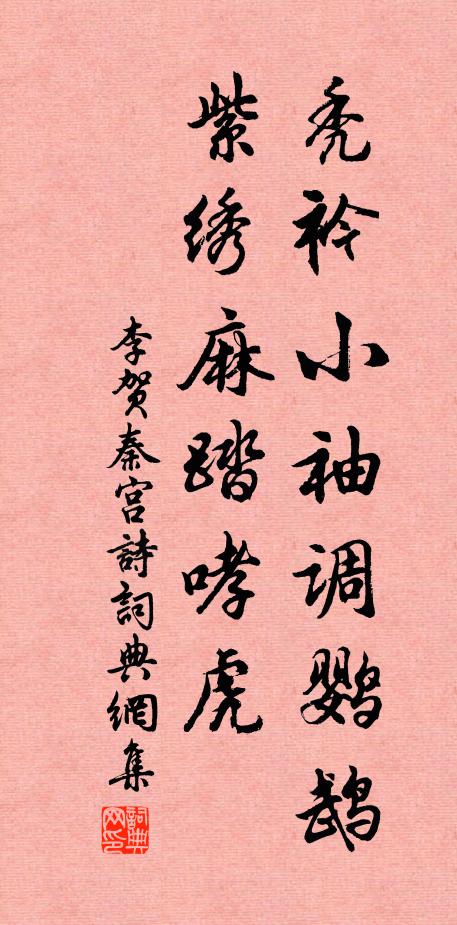 秃衿小袖调鹦鹉
紫绣麻踏哮虎
李贺秦宫詩詞典網集
詞典网印